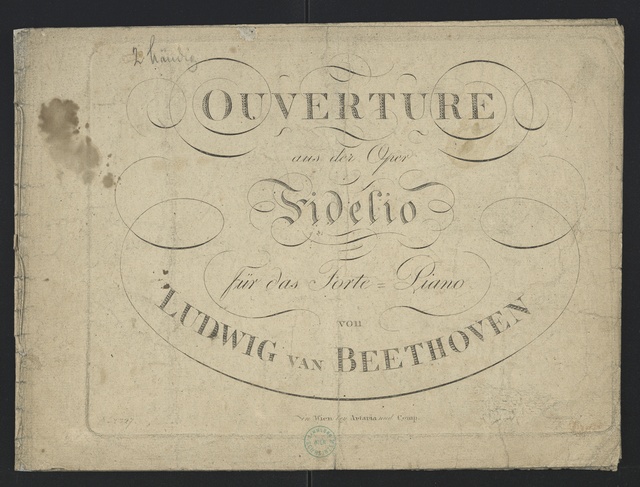 2 händig
OUVERTURE
aus der Oper
Fidelio
für das Forte=Piano
von
LUDWIG VAN BEETHOVEN
Wien bey Artaria und Comp.